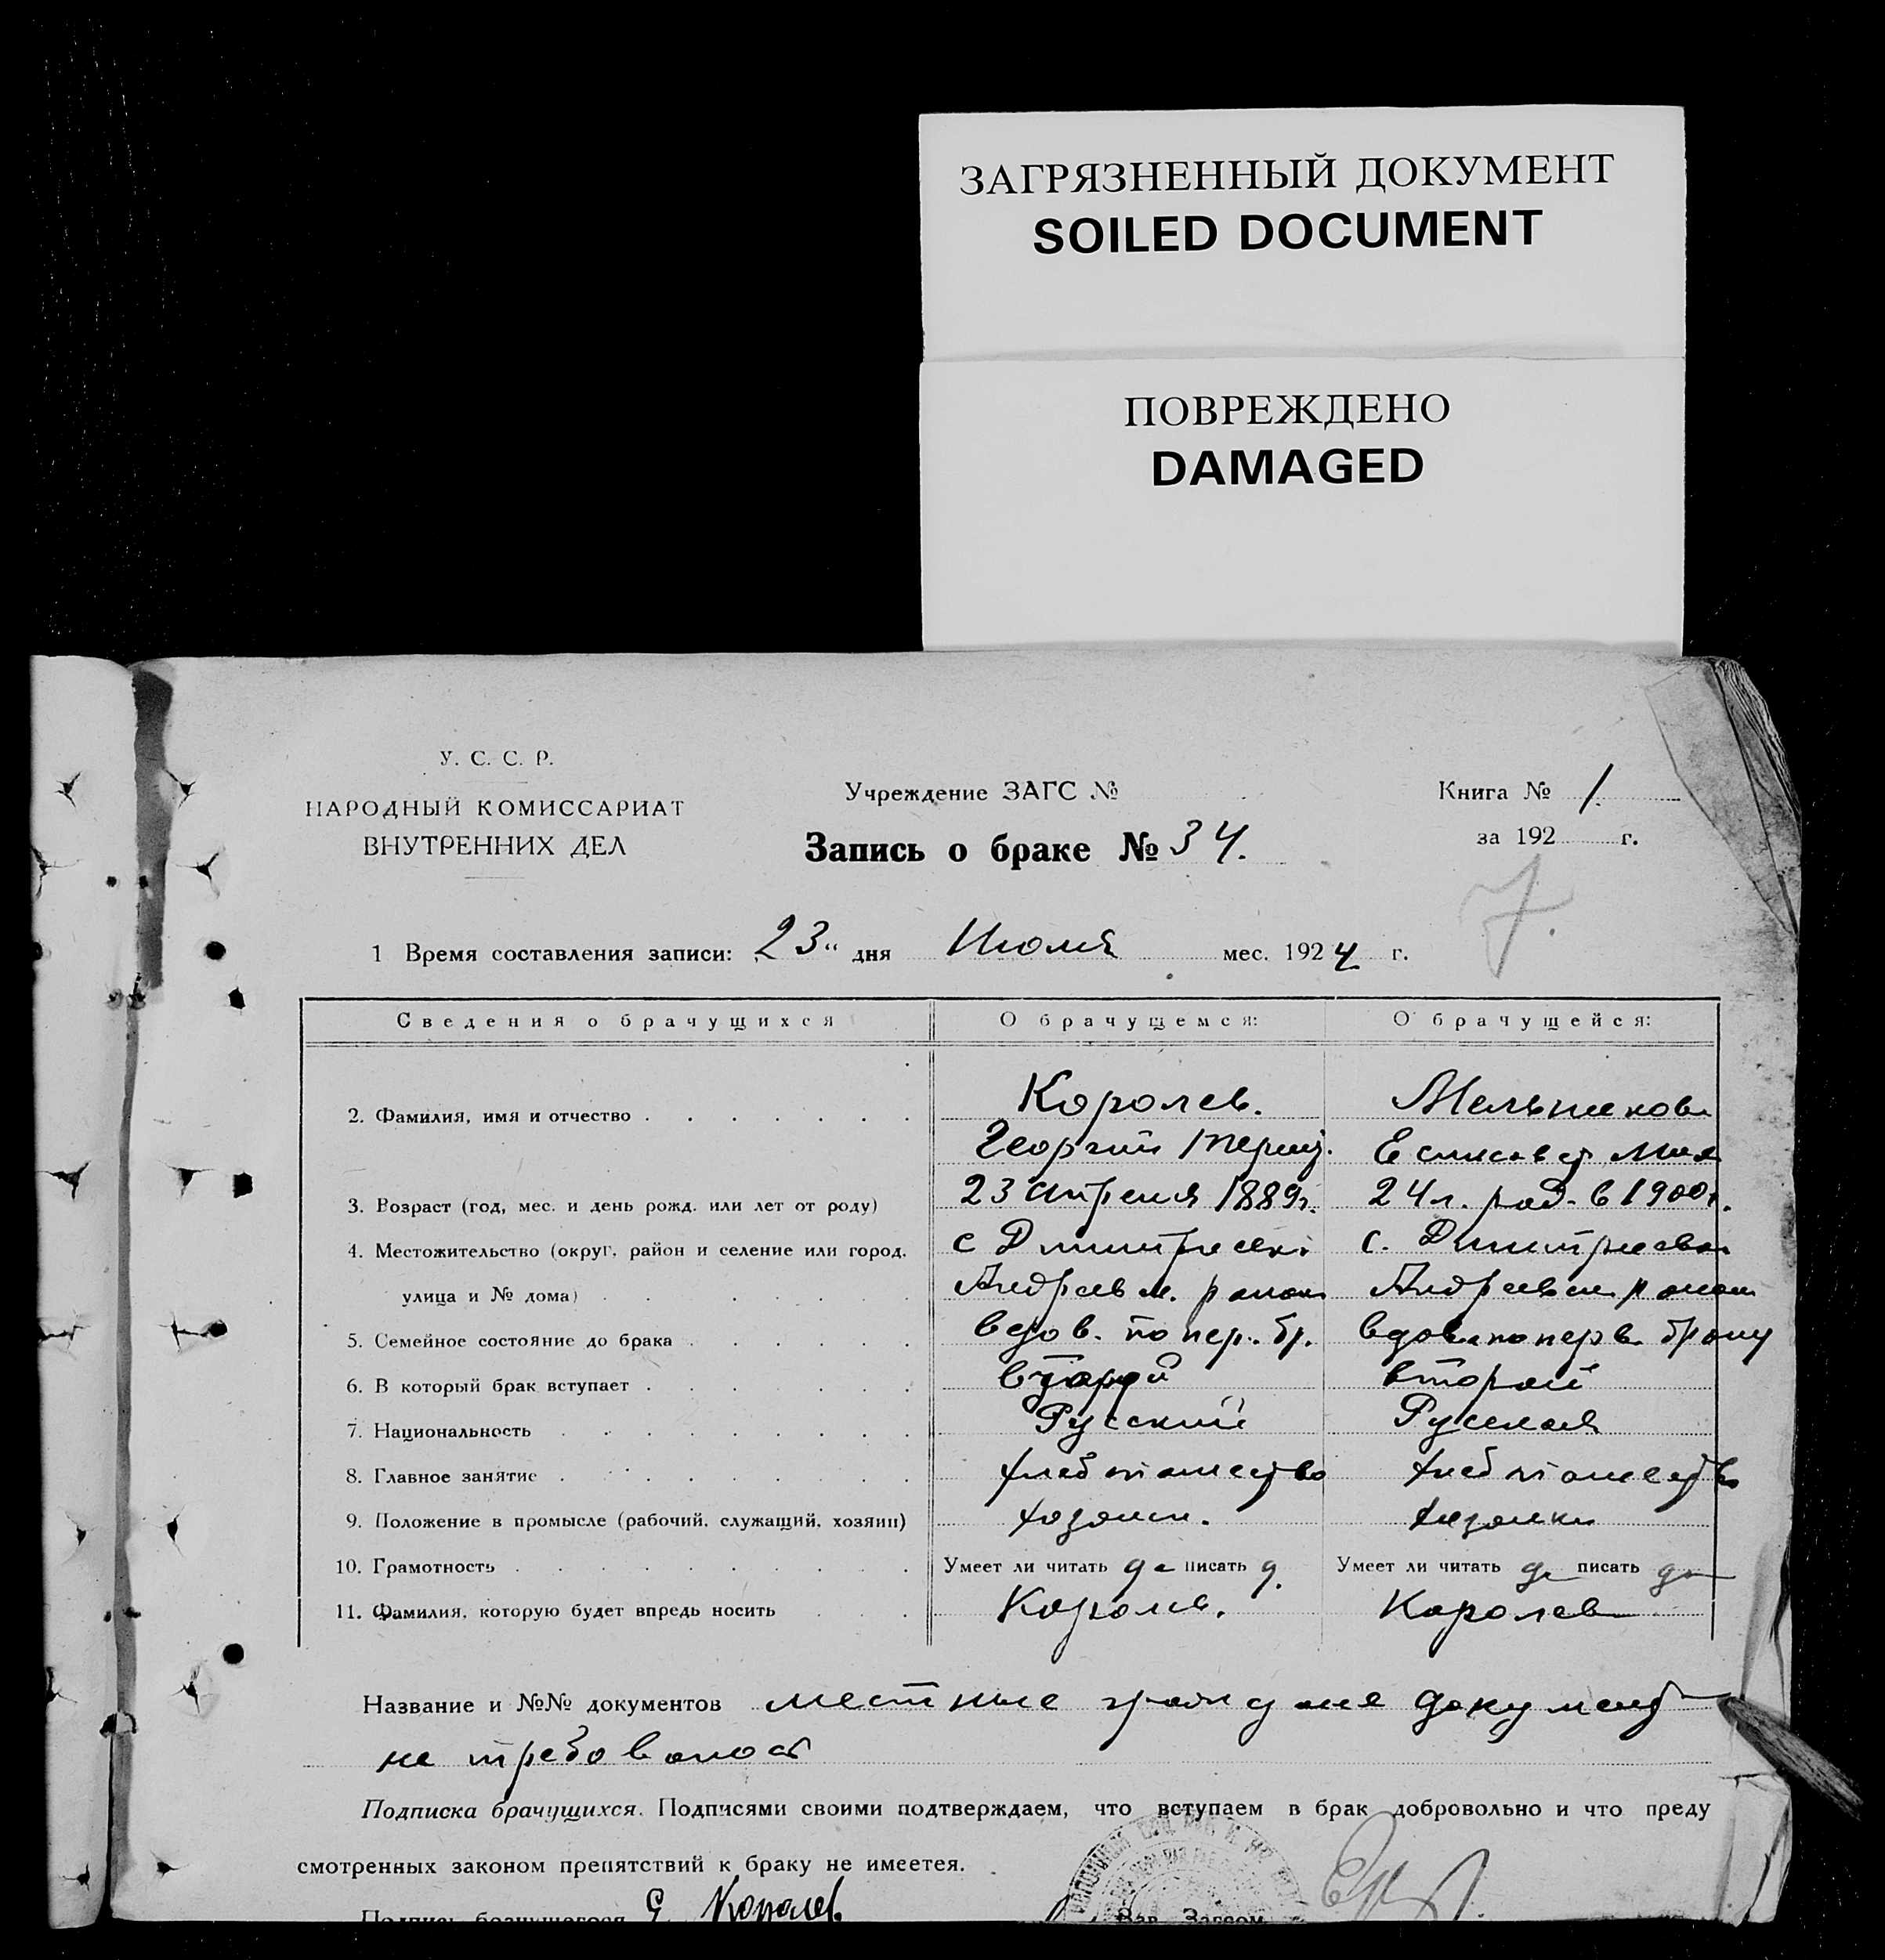 ЗАГРЯЗНЕННЫЙ ДОКУМЕНТ
SOILED DOCUMENT
ПОВРЕЖДЕНО
DAMAGED
У. С. С. Р.
НАРОДНЫЙ КОМИССАРИАТ
ВНУТРЕННИХ ДЕЛ
Учреждение ЗАГС №
Запись о браке № 34.
Книга № 1.
за 192 г.
7.
1 Время составления записи: 23" дня Июля мес. 1924 г.
Сведения о брачущихся О брачущемся: О брачущейся:
2. Фамилия, имя и отчество Королев. Мельникова
Георгий Елисавет
3. Возраст (год, мес. и день рожд. или лет от роду) 23 апреля 1889г. 24 л. род. в 1900г.
4. Местожительство (округ, район и селение или город, с Дмитриевк. с. Дмитриевка
улица и № дома) Андреевск. район Андреевск район
5. Семейное состояние до брака вдов. по пер. бр. вдова по перв. браку
6. В который брак вступает второй второй
7. Национальность Русский Русская
8. Главное занятие хлебопашество хлебопашество
9. Положение в промысле (рабочий, служащий, хозяин) хозяин. хозяйка
10. Грамотность Умеет ли читать да писать д. Умеет ли читать да писать да
11. Фамилия, которую будет впредь носить Королев. Королева
Название и №№ документов местные граждане документ
не требовалось
Подписка брачущихся. Подписями своими подтверждаем, что вступаем в брак добровольно и что преду
смотренных законом препятствий к браку не имеетея.
Подпись брачущегося Г Королев
Зав. Загсом